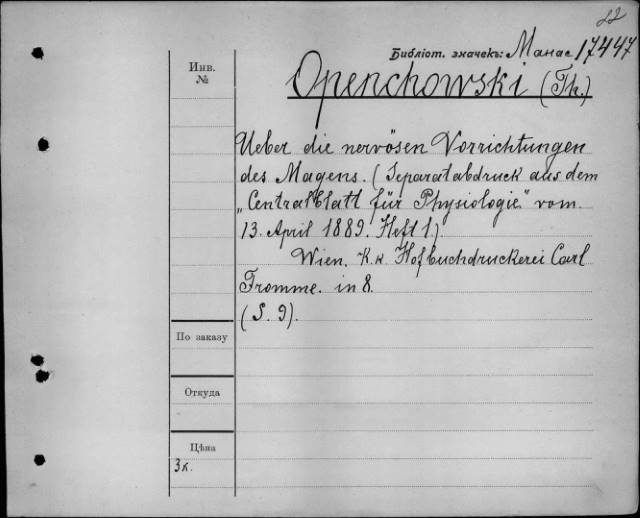 22
Библіот. значекъ: Манас 17447
Инв.
№
Openchowski (Th.)
Ueber die nervösen Vorrichtungen
des Magens. (Separatabdruck aus dem
„Centralblatt für Physiologie" vom
13. April 1889. Heft 1)
Wien, K. K. Hofbuchdruckerei Carl
Fromme. in 8.
(S. 9).
По заказу
Откуда
Цѣна
3 к.